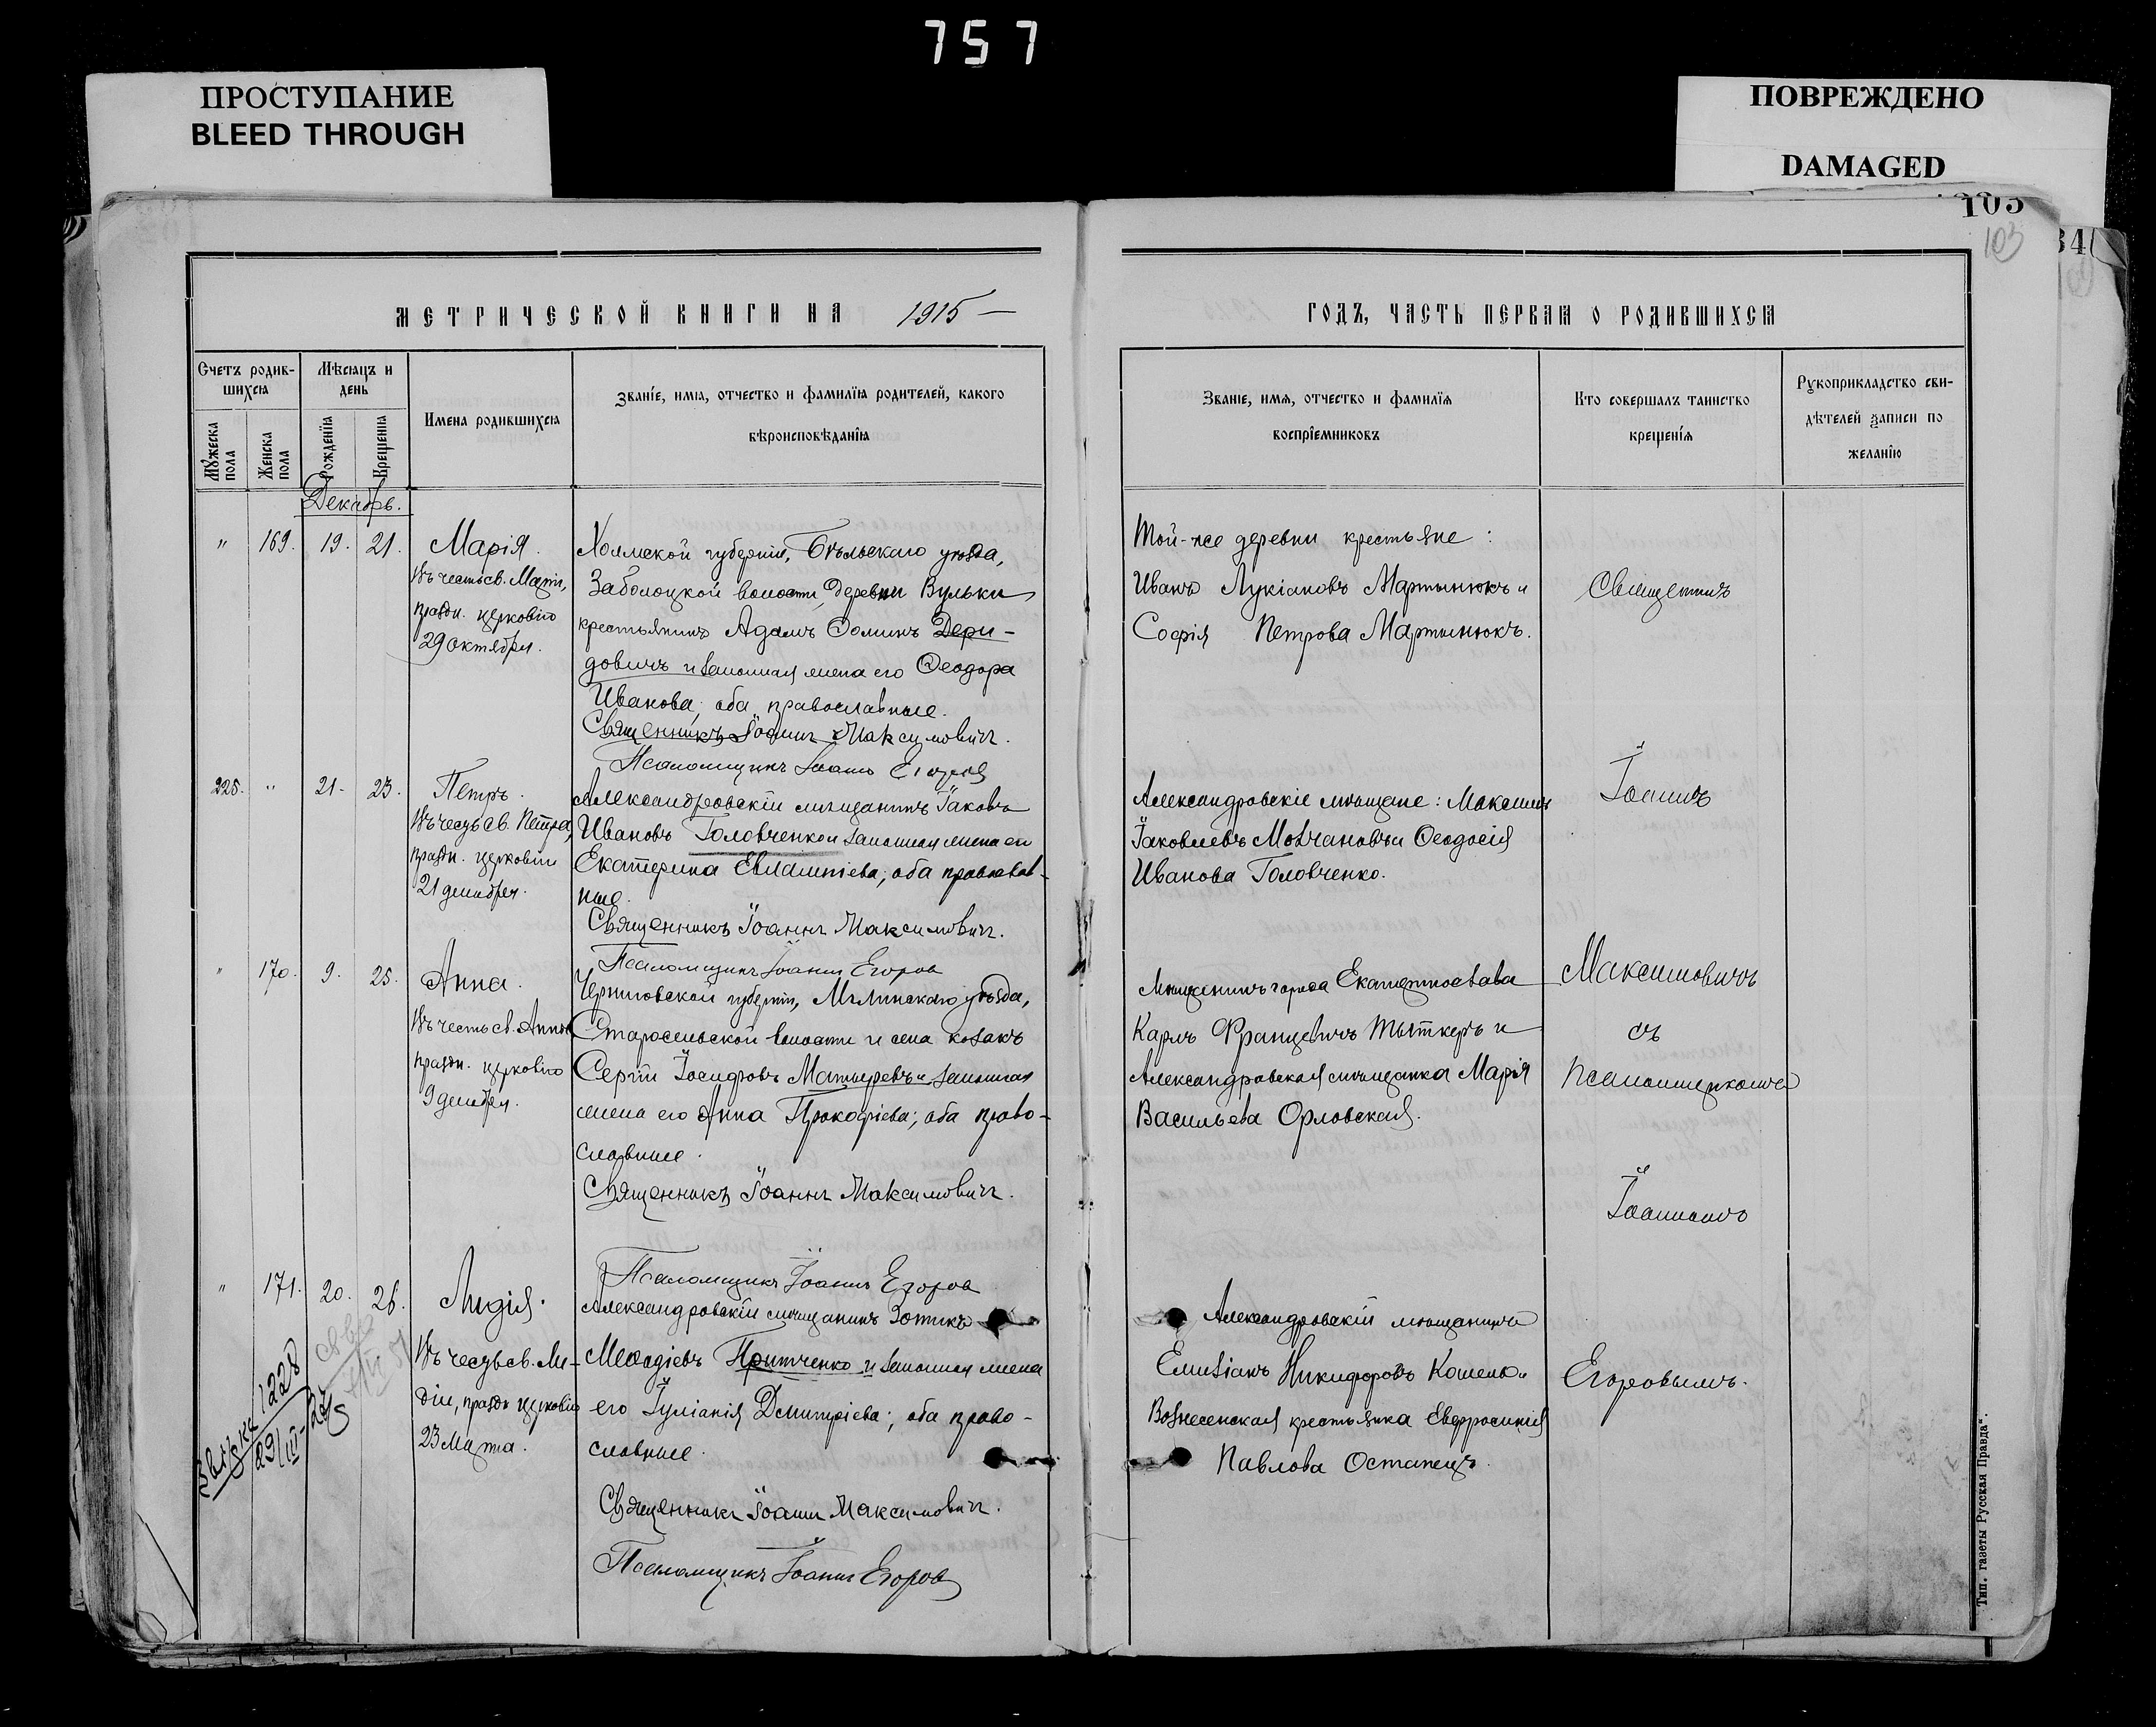 757
ПРОСТУПАНИЕ
BLEED THROUGH
ПОВРЕЖДЕНО
DAMAGED
103
103
34
МЕТРИЧЕСКОЙ КНИГИ НА 1915 —
ГОДЪ, ЧАСТЬ ПЕРВАЯ О РОДИВШИХСЯ
Счетъ родив-
шихся
Мѣсяцъ и
день
Мужеска
пола
Женска
пола
Рожденія
Крещенія
Имена родившихся
Званіе, имя, отчество и фамилія родителей, какого
вѣроисповѣданія
Званіе, имя, отчество и фамилія
воспріемниковъ
Кто совершалъ таинство
крещенія
Рукоприкладство сви-
дѣтелей записи по
желанію
Декабрь.
" 169. 19. 21.
Марія.
Въ честь св. Маріи,
праздн. церковію
29 октября.
Холмской губерніи, Бѣльскаго уѣзда,
Заболоцкой волости, деревни Вульки
крестьянинъ Адамъ Ѳоминъ Дери-
довичъ и законная жена его Ѳеодора
Иванова; оба православные.
Священникъ Іоаннъ Максимовичъ.
Псаломщикъ Іоаннъ Егоровъ
Той-же деревни крестьяне:
Иванъ Лукіановъ Мартынюкъ и
Софія Петрова Мартынюкъ.
Священникъ
225. " 21. 23.
Петръ.
Въ честь св. Петра,
праздн. церковію
21 декабря.
Александровскій мѣщанинъ Іаковъ
Ивановъ Головченко и законная жена его
Екатерина Евлампіева; оба православ-
ные.
Священникъ Іоаннъ Максимовичъ.
Псаломщикъ Іоаннъ Егоровъ
Александровскіе мѣщане: Максимъ
Іаковлевъ Молчановъ и Ѳеодосія
Иванова Головченко.
Іоаннъ
" 170. 9. 25.
Анна.
Въ честь св. Анны
праздн. церковію
9 декабря.
Черниговской губерніи, Мглинскаго уѣзда,
Старосельской волости и села козакъ
Сергій Іосифовъ и законная
жена его Анна Прокофіева; оба право-
славные.
Священникъ Іоаннъ Максимовичъ.
Псаломщикъ Іоаннъ Егоровъ
Мѣщанинъ города Екатеринослава
Карлъ Францевичъ и
Александровская мѣщанка Марія
Васильева Орловская.
Максимовичъ
съ
псаломщикомъ
Іоанномъ
" 171. 20. 26.
Лидія.
Въ честь св. Ли-
діи, праздн. церковію
23 Марта.
Александровскій мѣщанинъ Зотикъ
Меѳодіевъ Притченко и законная жена
его Іуліанія Димитріева; оба право-
славные.
Священникъ Іоаннъ Максимовичъ.
Псаломщикъ Іоаннъ Егоровъ
Александровскій мѣщанинъ
Емиліанъ Никифоровъ Кошель и
Вознесенская крестьянка Евфросинія
Павлова Остапецъ.
Егоровымъ.
1228
Тип. газеты „Русская Правда“.